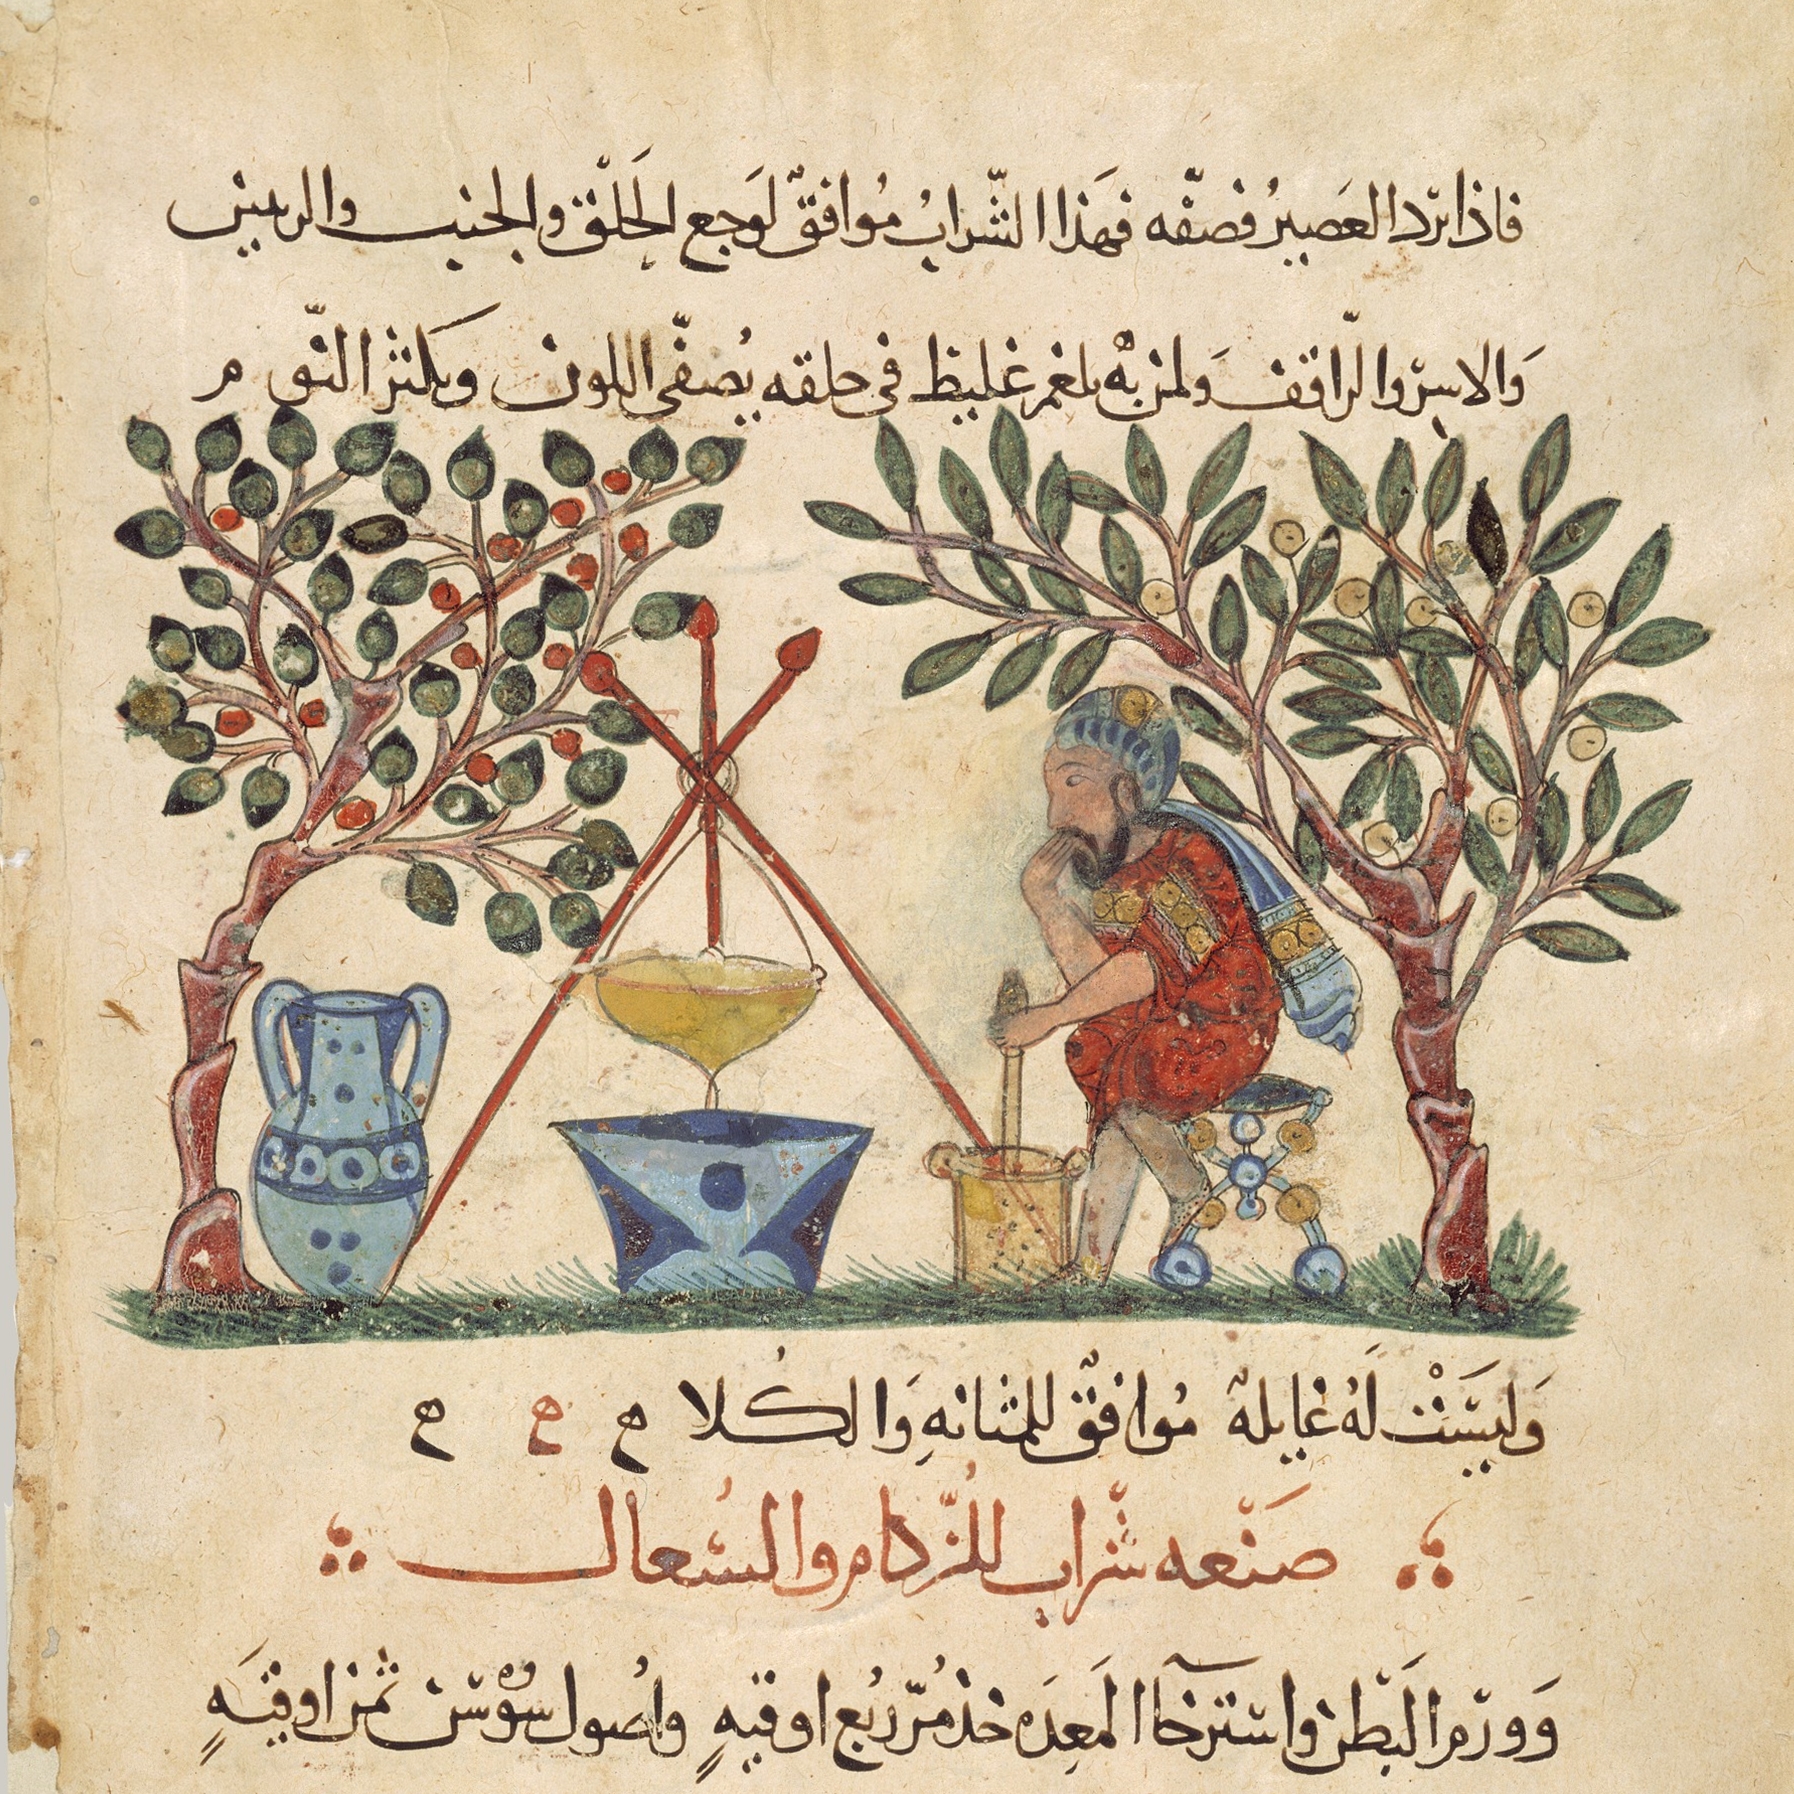 فاذا برّد العَصيرُ فصفّه فهَذا الشّرابُ مُوافقٌ لوَجع الحَلْق والجنب والرئتين
وَالاسرّ والرّاقف وَلمن بهْ بلغم غليظ في حلقه يُصفّى اللون وَيكثر النّوم
وَليسَتْ لَهُ غايلهٌ مُوافقٌ للمثانهِ وَالكُلا ح ح ح
صَنْعه شّراب للزّكام والسُعال
وَورّم البَطن واسترخآ المَعِدَه خذ مُرّ ربُع اوقيهٍ واصُول سوُسن ثمن اوقيَهٍ